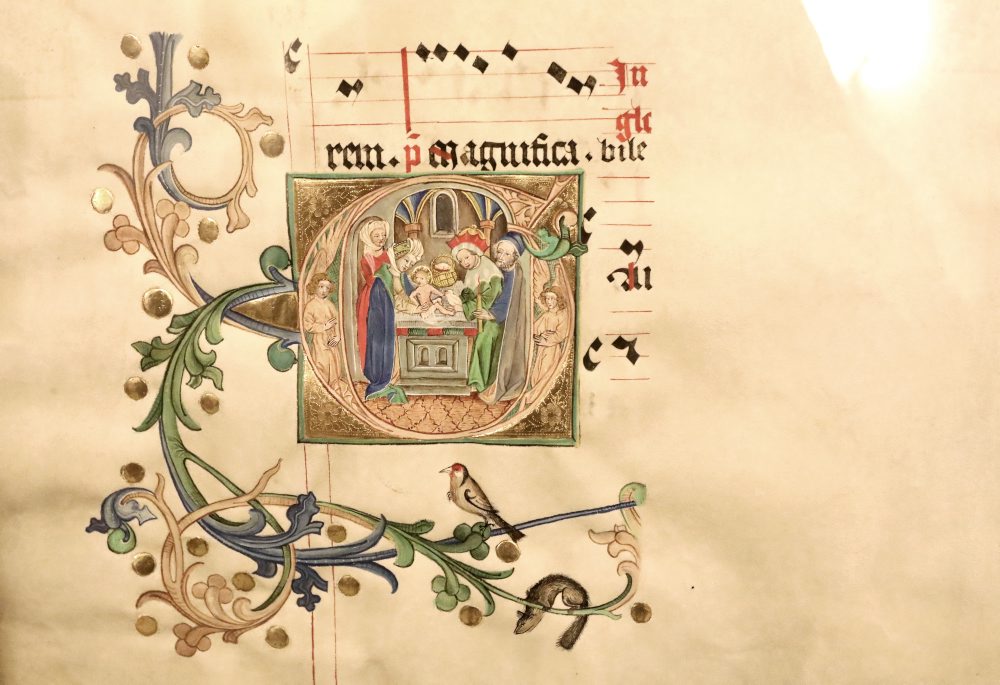 In
glo
rem . p̄ Magnifica . bile